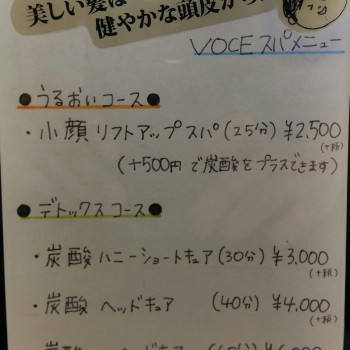 美しい髪は
健やかな頭皮から
VOCEスパメニュー
●うるおいコース●
・小顔リフトアップスパ(25分) ¥2,500
(+税)
(+500円で炭酸をプラスできます)
●デトックスコース●
・炭酸ハニーショートキュア(30分) ¥3,000
(+税)
・炭酸 ヘッドキュア (40分) ¥4,000
(+税)